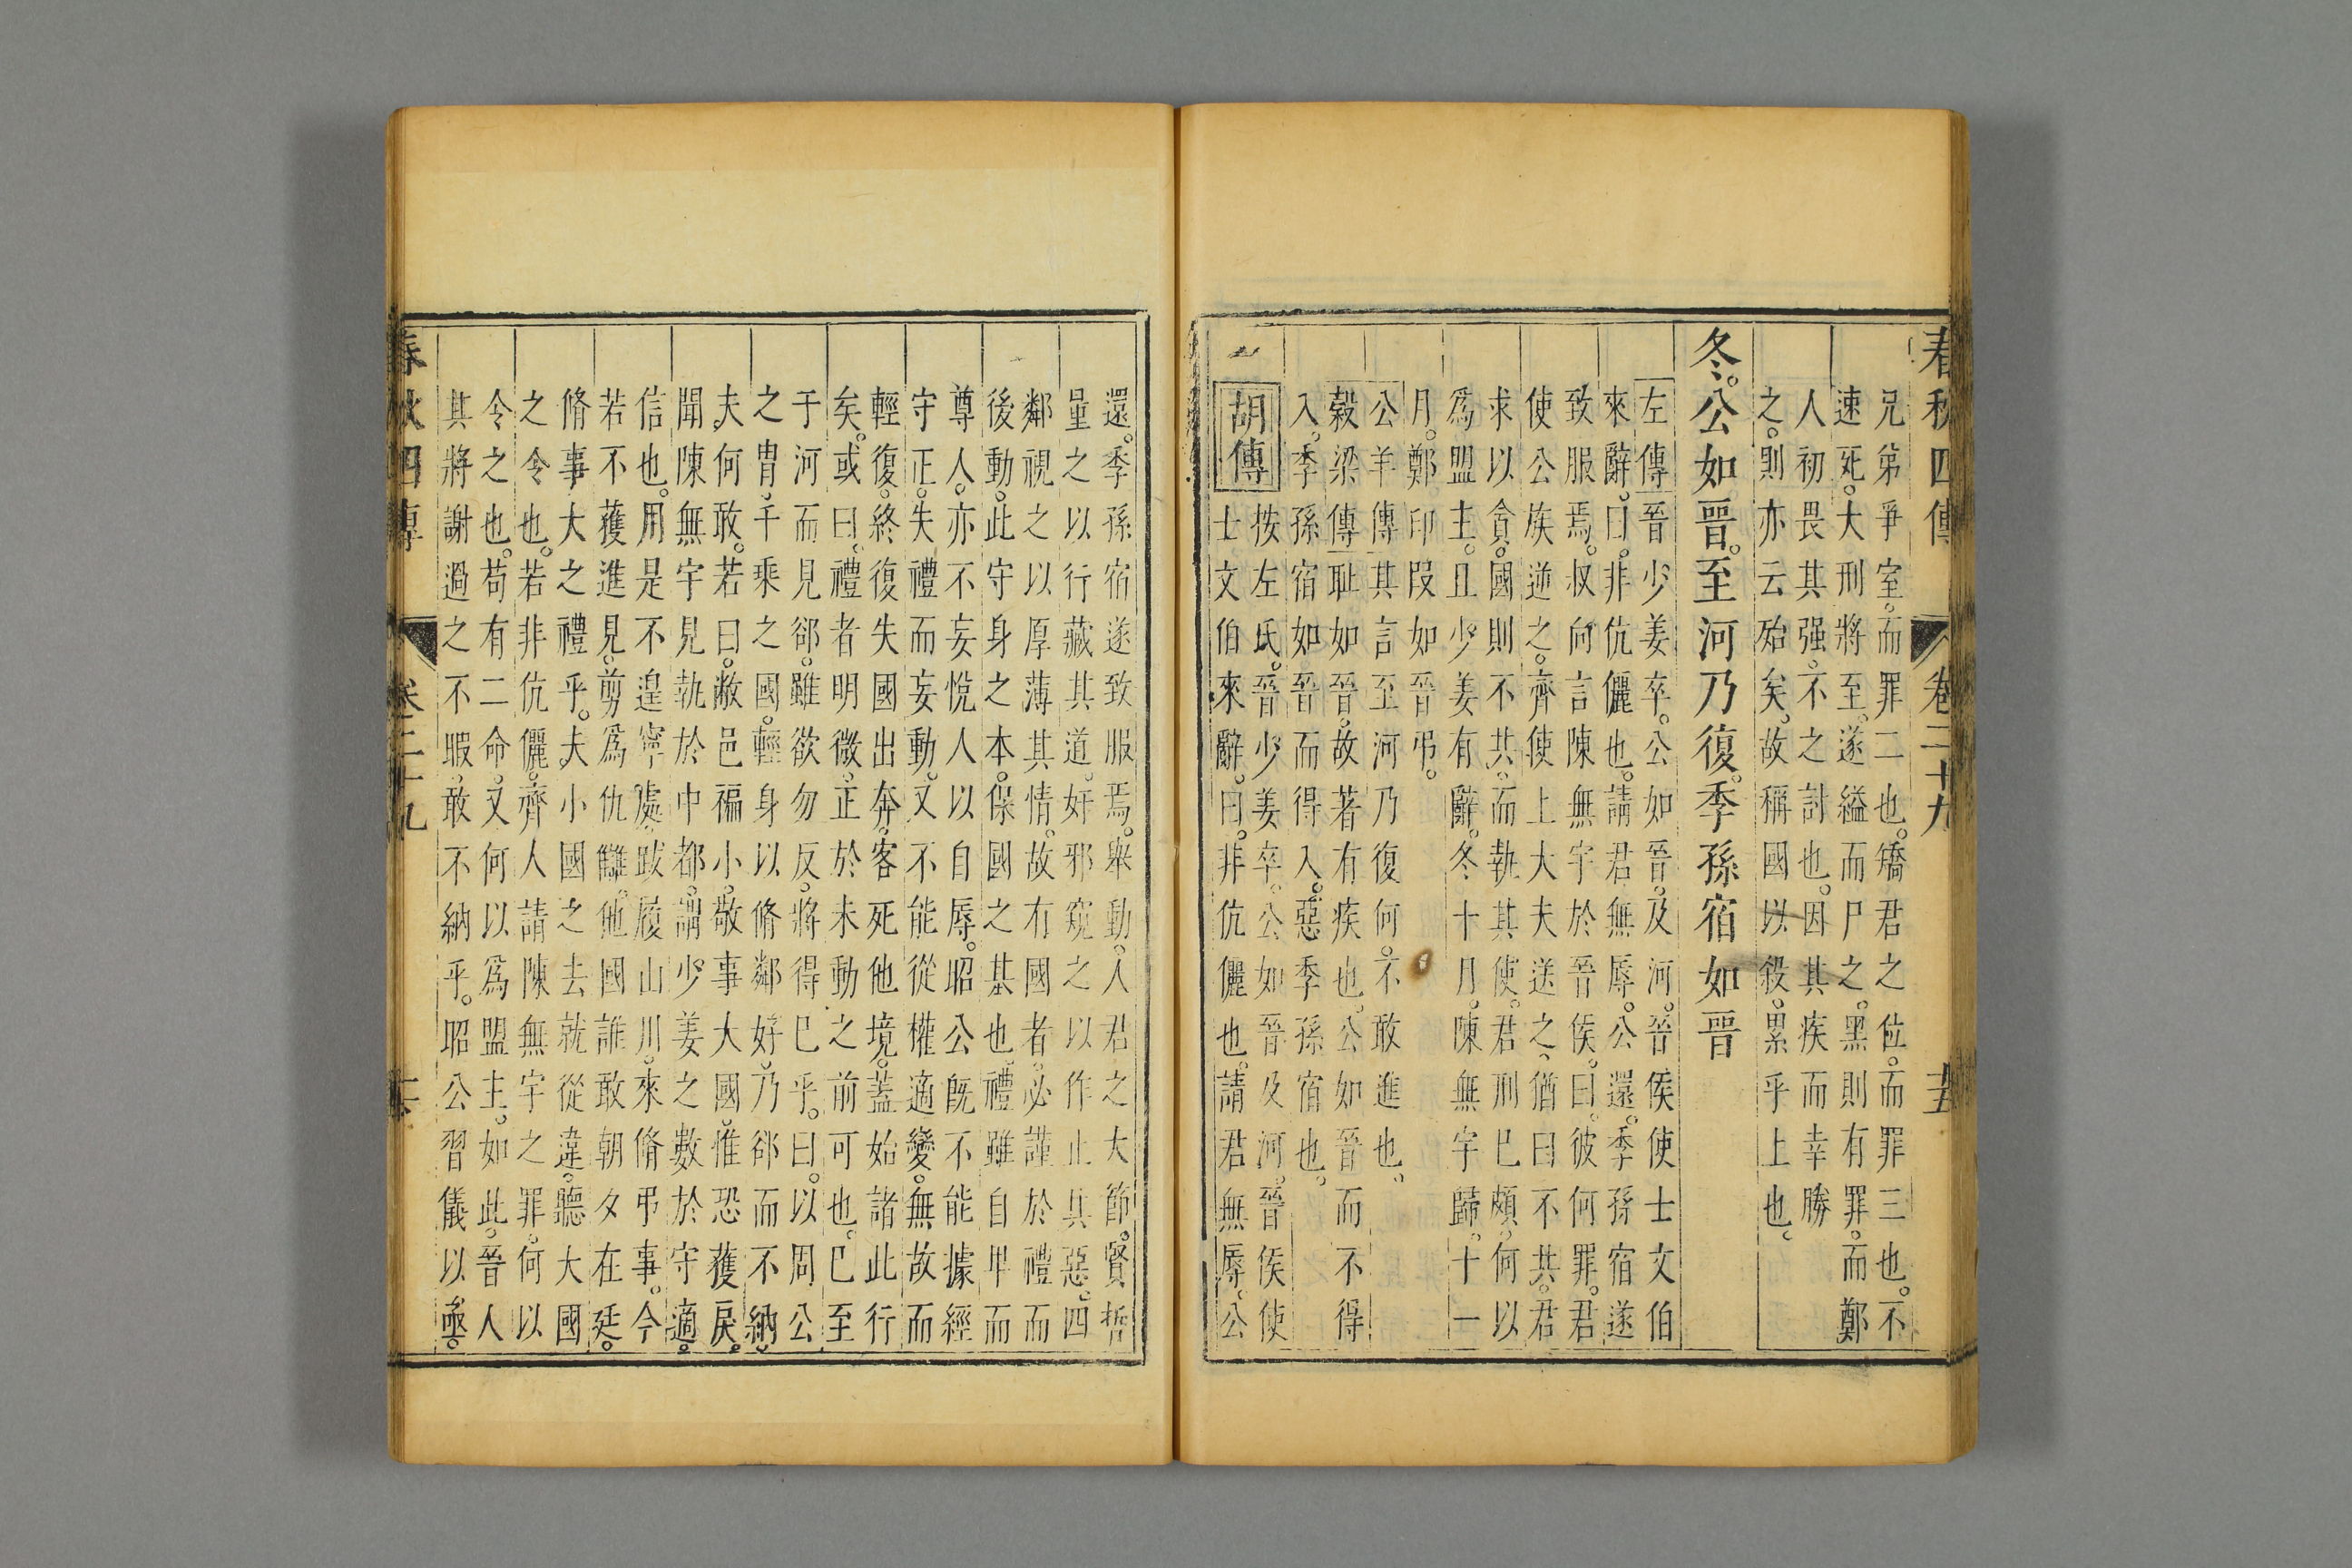 春秋四傳 卷二十九 十五
兄弟爭室。而罪二也。矯君之位。而罪三也。不
速死。大刑將至。遂縊而尸之。黑則有罪。而鄭
人初畏其强。不之討也。因其疾而幸勝
之。則亦云殆矣。故稱國以殺。累乎上也。
冬。公如晉。至河乃復。季孫宿如晉
左傳晉少姜卒。公如晉。及河。晉侯使士文伯
來辭。曰。非伉儷也。請君無辱。公還。季孫宿遂
致服焉。叔向言陳無宇於晉侯。曰。彼何罪。君
使公族逆之。齊使上大夫送之。猶曰不共。君
求以貪。國則不共。而執其使。君刑已頗。何以
為盟主。且少姜有辭。冬十月。陳無宇歸。十一
月。鄭印段如晉弔。
公羊傳其言至河乃復何。不敢進也。
穀梁傳耻如晉。故著有疾也。公如晉而不得
入。季孫宿如晉而得入。惡季孫宿也。
胡傳按左氏。晉少姜卒。公如晉及河。晉侯使
士文伯來辭。曰。非伉儷也。請君無辱。公
還。季孫宿遂致服焉。舉動。人君之大節。賢哲
量之以行藏其道。奸邪窺之以作止其惡。四
鄰視之以厚薄其情。故有國者。必謹於禮而
後動。此守身之本。保國之基也。禮雖自卑而
尊人。亦不妄悅人以自辱。昭公旣不能據經
守正。失禮而妄動。又不能從權適變。無故而
輕復。終復失國出奔。客死他境。蓋始諸此行
矣。或曰。禮者明微。正於未動之前可也。已至
于河而見郤。雖欲勿反。將得已乎。曰。以周公
之胄。千乘之國。輕身以脩鄰好。乃郤而不納
夫何敢。若曰。敝邑褊小。敬事大國。惟恐獲戾。
聞陳無宇見執於中都。謂少姜之數於守適。
信也。用是不遑寧處。跋履山川。來脩弔事。今
若不獲進見。剪為仇讎。他國誰敢朝夕在廷。
脩事大之禮乎。夫小國之去就從違。聽大國
之令也。若非伉儷。齊人請陳無宇之罪。何以
令之也。苟有二命。又何以為盟主。如此。晉人
其將謝過之不暇。敢不納乎。昭公習儀以亟。
春秋四傳 卷二十九